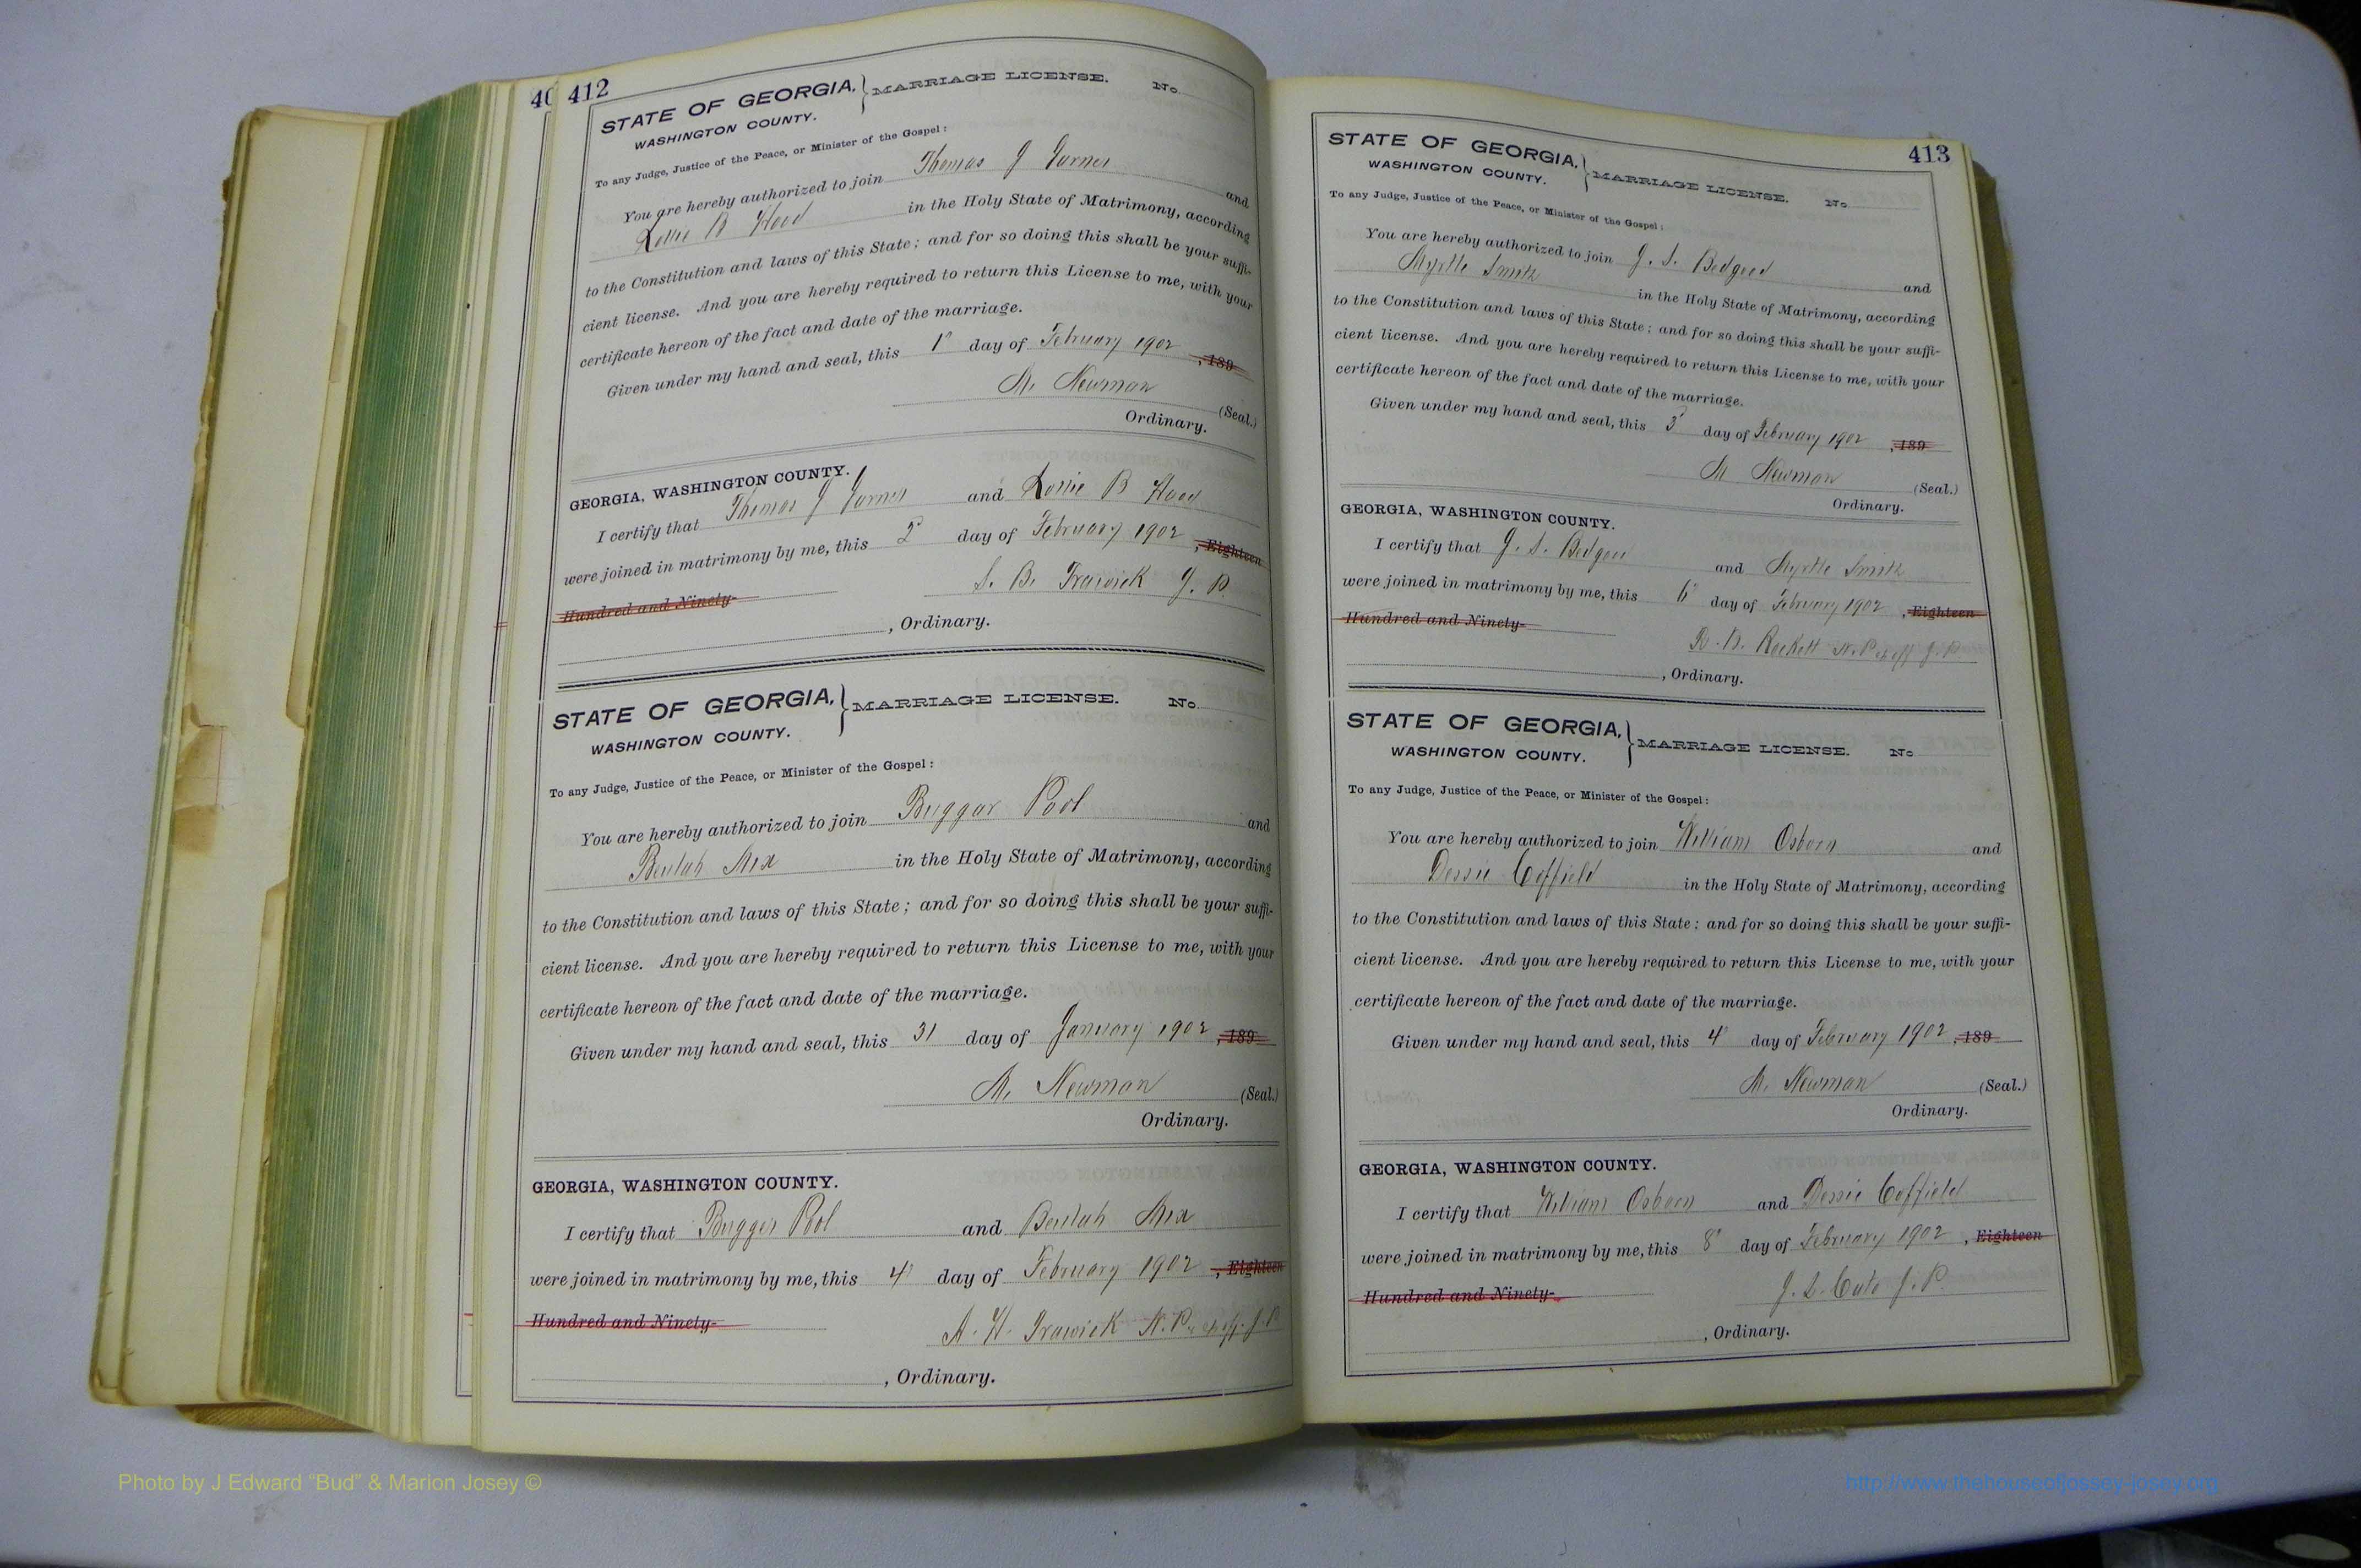 40 412
STATE OF GEORGIA, } MARRIAGE LICENSE. No.
WASHINGTON COUNTY.
To any Judge, Justice of the Peace, or Minister of the Gospel:
You are hereby authorized to join Thomas J Turner and
Lottie B Hood in the Holy State of Matrimony, according
to the Constitution and laws of this State; and for so doing this shall be your suffi-
cient license. And you are hereby required to return this License to me, with your
certificate hereon of the fact and date of the marriage.
Given under my hand and seal, this 1" day of February 1902, 189
M. Newman (Seal.)
Ordinary.
GEORGIA, WASHINGTON COUNTY.
I certify that Thomas J Turner and Lottie B Hood
were joined in matrimony by me, this 2" day of February 1902, Eighteen
Hundred and Ninety- S. B. Trawick J. P.
, Ordinary.
STATE OF GEORGIA, } MARRIAGE LICENSE. No.
WASHINGTON COUNTY.
To any Judge, Justice of the Peace, or Minister of the Gospel:
You are hereby authorized to join Buggar Pool and
Beulah Mix in the Holy State of Matrimony, according
to the Constitution and laws of this State; and for so doing this shall be your suffi-
cient license. And you are hereby required to return this License to me, with your
certificate hereon of the fact and date of the marriage.
Given under my hand and seal, this 31 day of January 1902, 189
M. Newman (Seal.)
Ordinary.
GEORGIA, WASHINGTON COUNTY.
I certify that Bugger Pool and Beulah Mix
were joined in matrimony by me, this 4" day of February 1902, Eighteen
Hundred and Ninety- A. H. Trawick N. P. J. P.
, Ordinary.
413
STATE OF GEORGIA, } MARRIAGE LICENSE. No.
WASHINGTON COUNTY.
To any Judge, Justice of the Peace, or Minister of the Gospel:
You are hereby authorized to join J. S. Bedgood and
Myrtle Smith in the Holy State of Matrimony, according
to the Constitution and laws of this State; and for so doing this shall be your suffi-
cient license. And you are hereby required to return this License to me, with your
certificate hereon of the fact and date of the marriage.
Given under my hand and seal, this 3" day of February 1902, 189
M Newman (Seal.)
Ordinary.
GEORGIA, WASHINGTON COUNTY.
I certify that J. S. Bedgood and Myrtle Smith
were joined in matrimony by me, this 6" day of February 1902, Eighteen
Hundred and Ninety- Rockett N. P. J. P.
, Ordinary.
STATE OF GEORGIA, } MARRIAGE LICENSE. No
WASHINGTON COUNTY.
To any Judge, Justice of the Peace, or Minister of the Gospel:
You are hereby authorized to join William Osborn and
Dessie Coffield in the Holy State of Matrimony, according
to the Constitution and laws of this State; and for so doing this shall be your suffi-
cient license. And you are hereby required to return this License to me, with your
certificate hereon of the fact and date of the marriage.
Given under my hand and seal, this 4" day of February 1902, 189
M. Newman (Seal.)
Ordinary.
GEORGIA, WASHINGTON COUNTY.
I certify that William Osborn and Dessie Coffield
were joined in matrimony by me, this 8" day of February 1902, Eighteen
Hundred and Ninety- J. L. Cato J. P.
, Ordinary.
Photo by J Edward "Bud" & Marion Josey ©
http://www.thehouseofjossey-josey.org